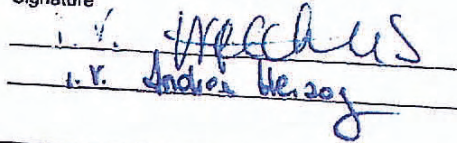 Signature
i. V.
i. V. Andrea Herzog